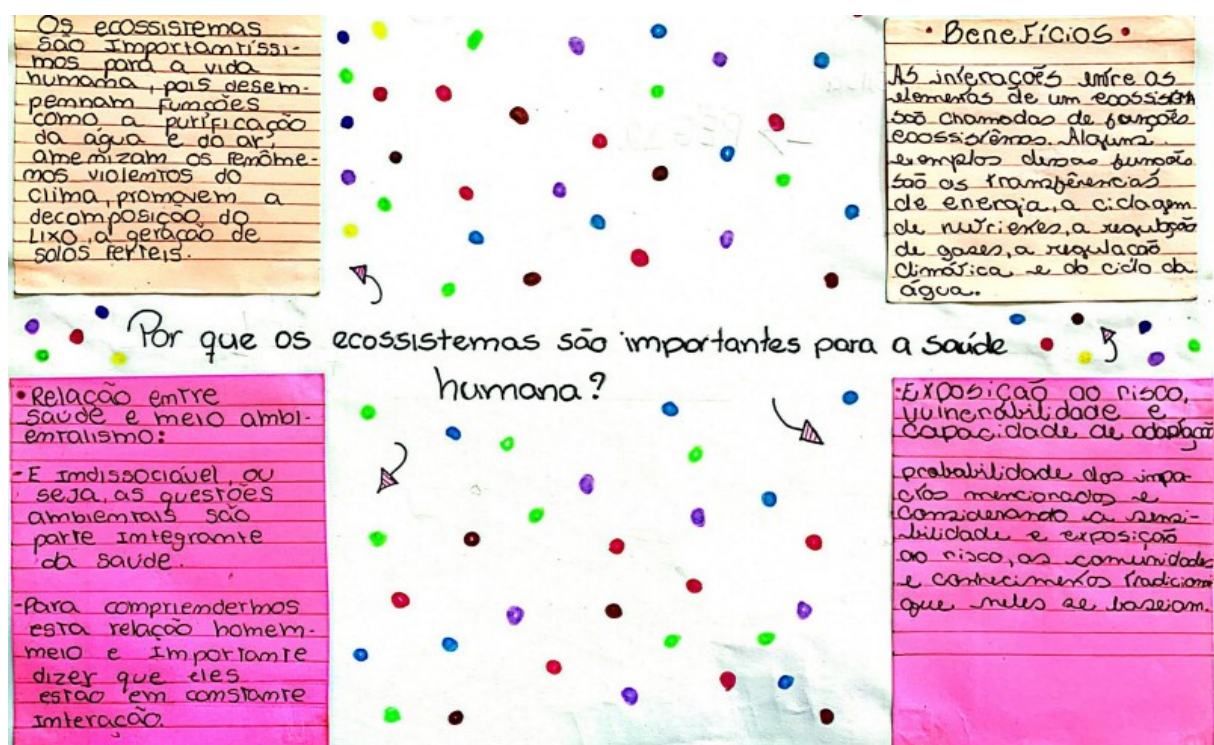 Os ecossistemas
são Importantíssi-
mos para a vida
humana, pois desem-
penham funções
como a purificação
da água e do ar,
amenizam os fenôme-
nos violentos do
clima, promovem a
decomposição do
Lixo, a geração de
solos ferteis.
• Benefícios •
As interações entre os
elementos de um ecossistema
são chamadas de funções
ecossistêmas. Alguns
exemplos dessas funções
são as transferências
de energia, a ciclagem
de nutrientes, a regulação
de gases, a regulação
climática e do ciclo da
água.
Por que os ecossistemas são importantes para a saúde
humana?
• Relação entre
saúde e meio ambi-
entalismo:
- É Indissociável, ou
seja, as questões
ambientais são
parte Integrante
da saúde.
- Para compriendermos
esta relação homem-
meio e Importante
dizer que eles
estão em constante
interação.
• Exposição ao risco,
vulnerabilidade e
capacidade de adaptação
probabilidade dos impa-
ctos mencionados e
considerando a sensi-
bilidade e exposição
ao risco, as comunidades
e conhecimentos tradicionais
que neles se baseiam.